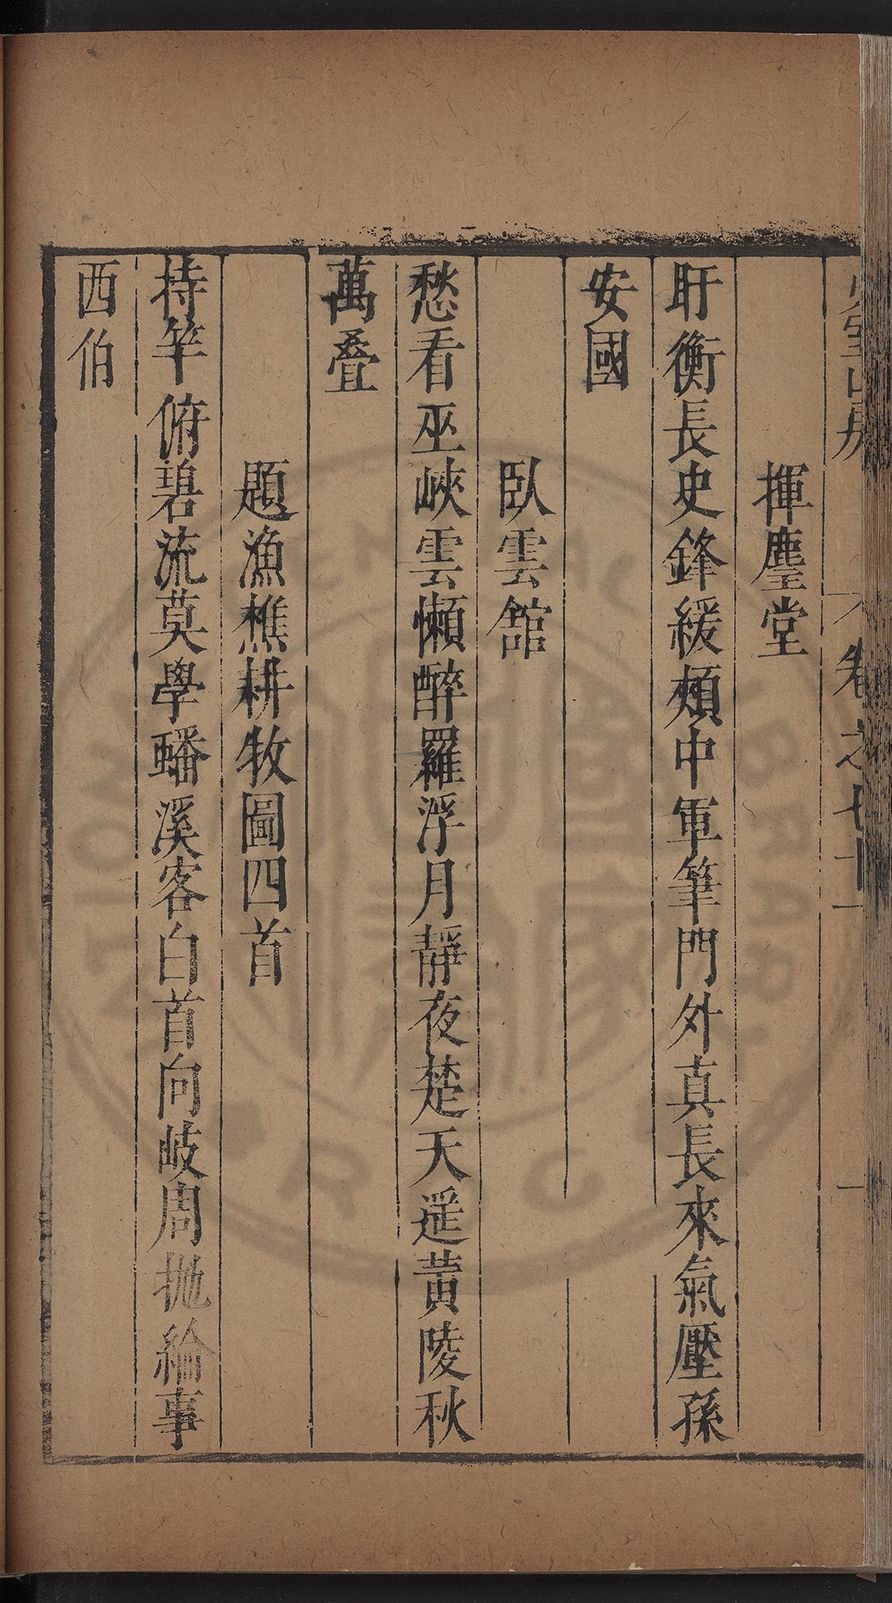 卷之七十一
揮麈堂
盱衡長史鋒緩頰中軍筆門外真長來氣壓孫
安國
臥雲館
愁看巫峽雲懶醉羅浮月靜夜楚天遥黄陵秋
萬叠
題漁樵耕牧圖四首
持竿俯碧流莫學蟠溪客白首向岐周抛綸事
西伯